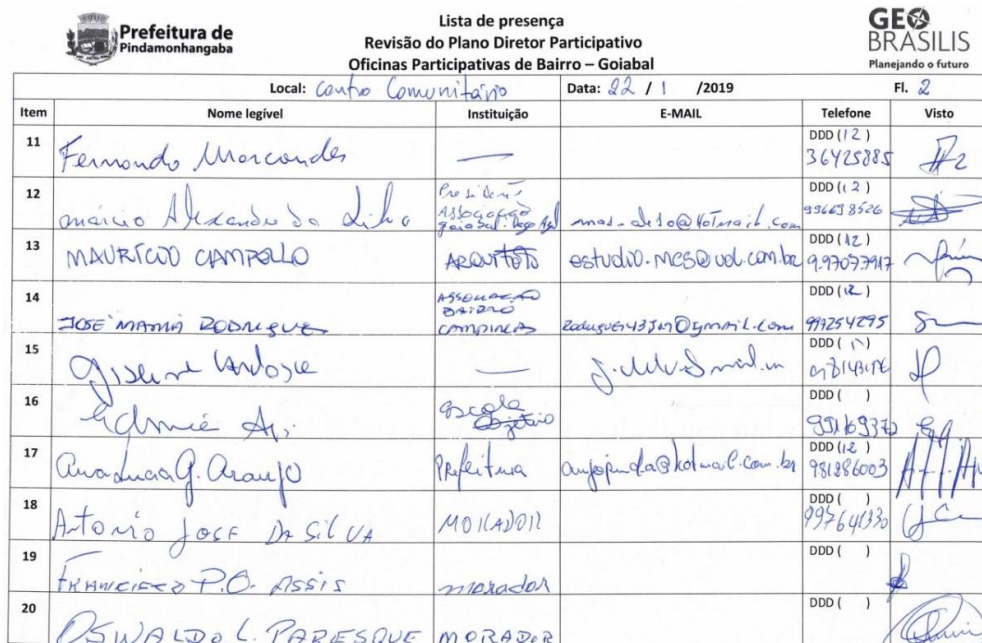 Prefeitura de
Pindamonhangaba
Lista de presença
Revisão do Plano Diretor Participativo
Oficinas Participativas de Bairro – Goiabal
GEO
BRASILIS
Planejando o futuro
Local: Centro Comunitário Data: 22 / 1 /2019 Fl. 2
Item Nome legível Instituição E-MAIL Telefone Visto
11 Fernando Marcondes — DDD (12)
36425885
12 márcio Alexandre da Presidente
Associação
DDD (12)
13 MAURÍCIO CAMPELLO ARQUITETO estudio.mcs@uol.com.br DDD (12)
9.97077917
14 JOSÉ MARIA RODRIGUES ASSOCIAÇÃO
BAIRRO
CAMPINAS
DDD (12)
997254295
15 — DDD ( )
16 Escola
Objetivo
DDD ( )
17 G. Araujo Prefeitura DDD (12)
981286003
18 Antonio JOSE DA SILVA MORADOR DDD ( )
997641330
19 FRANCISCO P.O. ASSIS morador DDD ( )
20 OSWALDO L. PARESQUE MORADOR DDD ( )